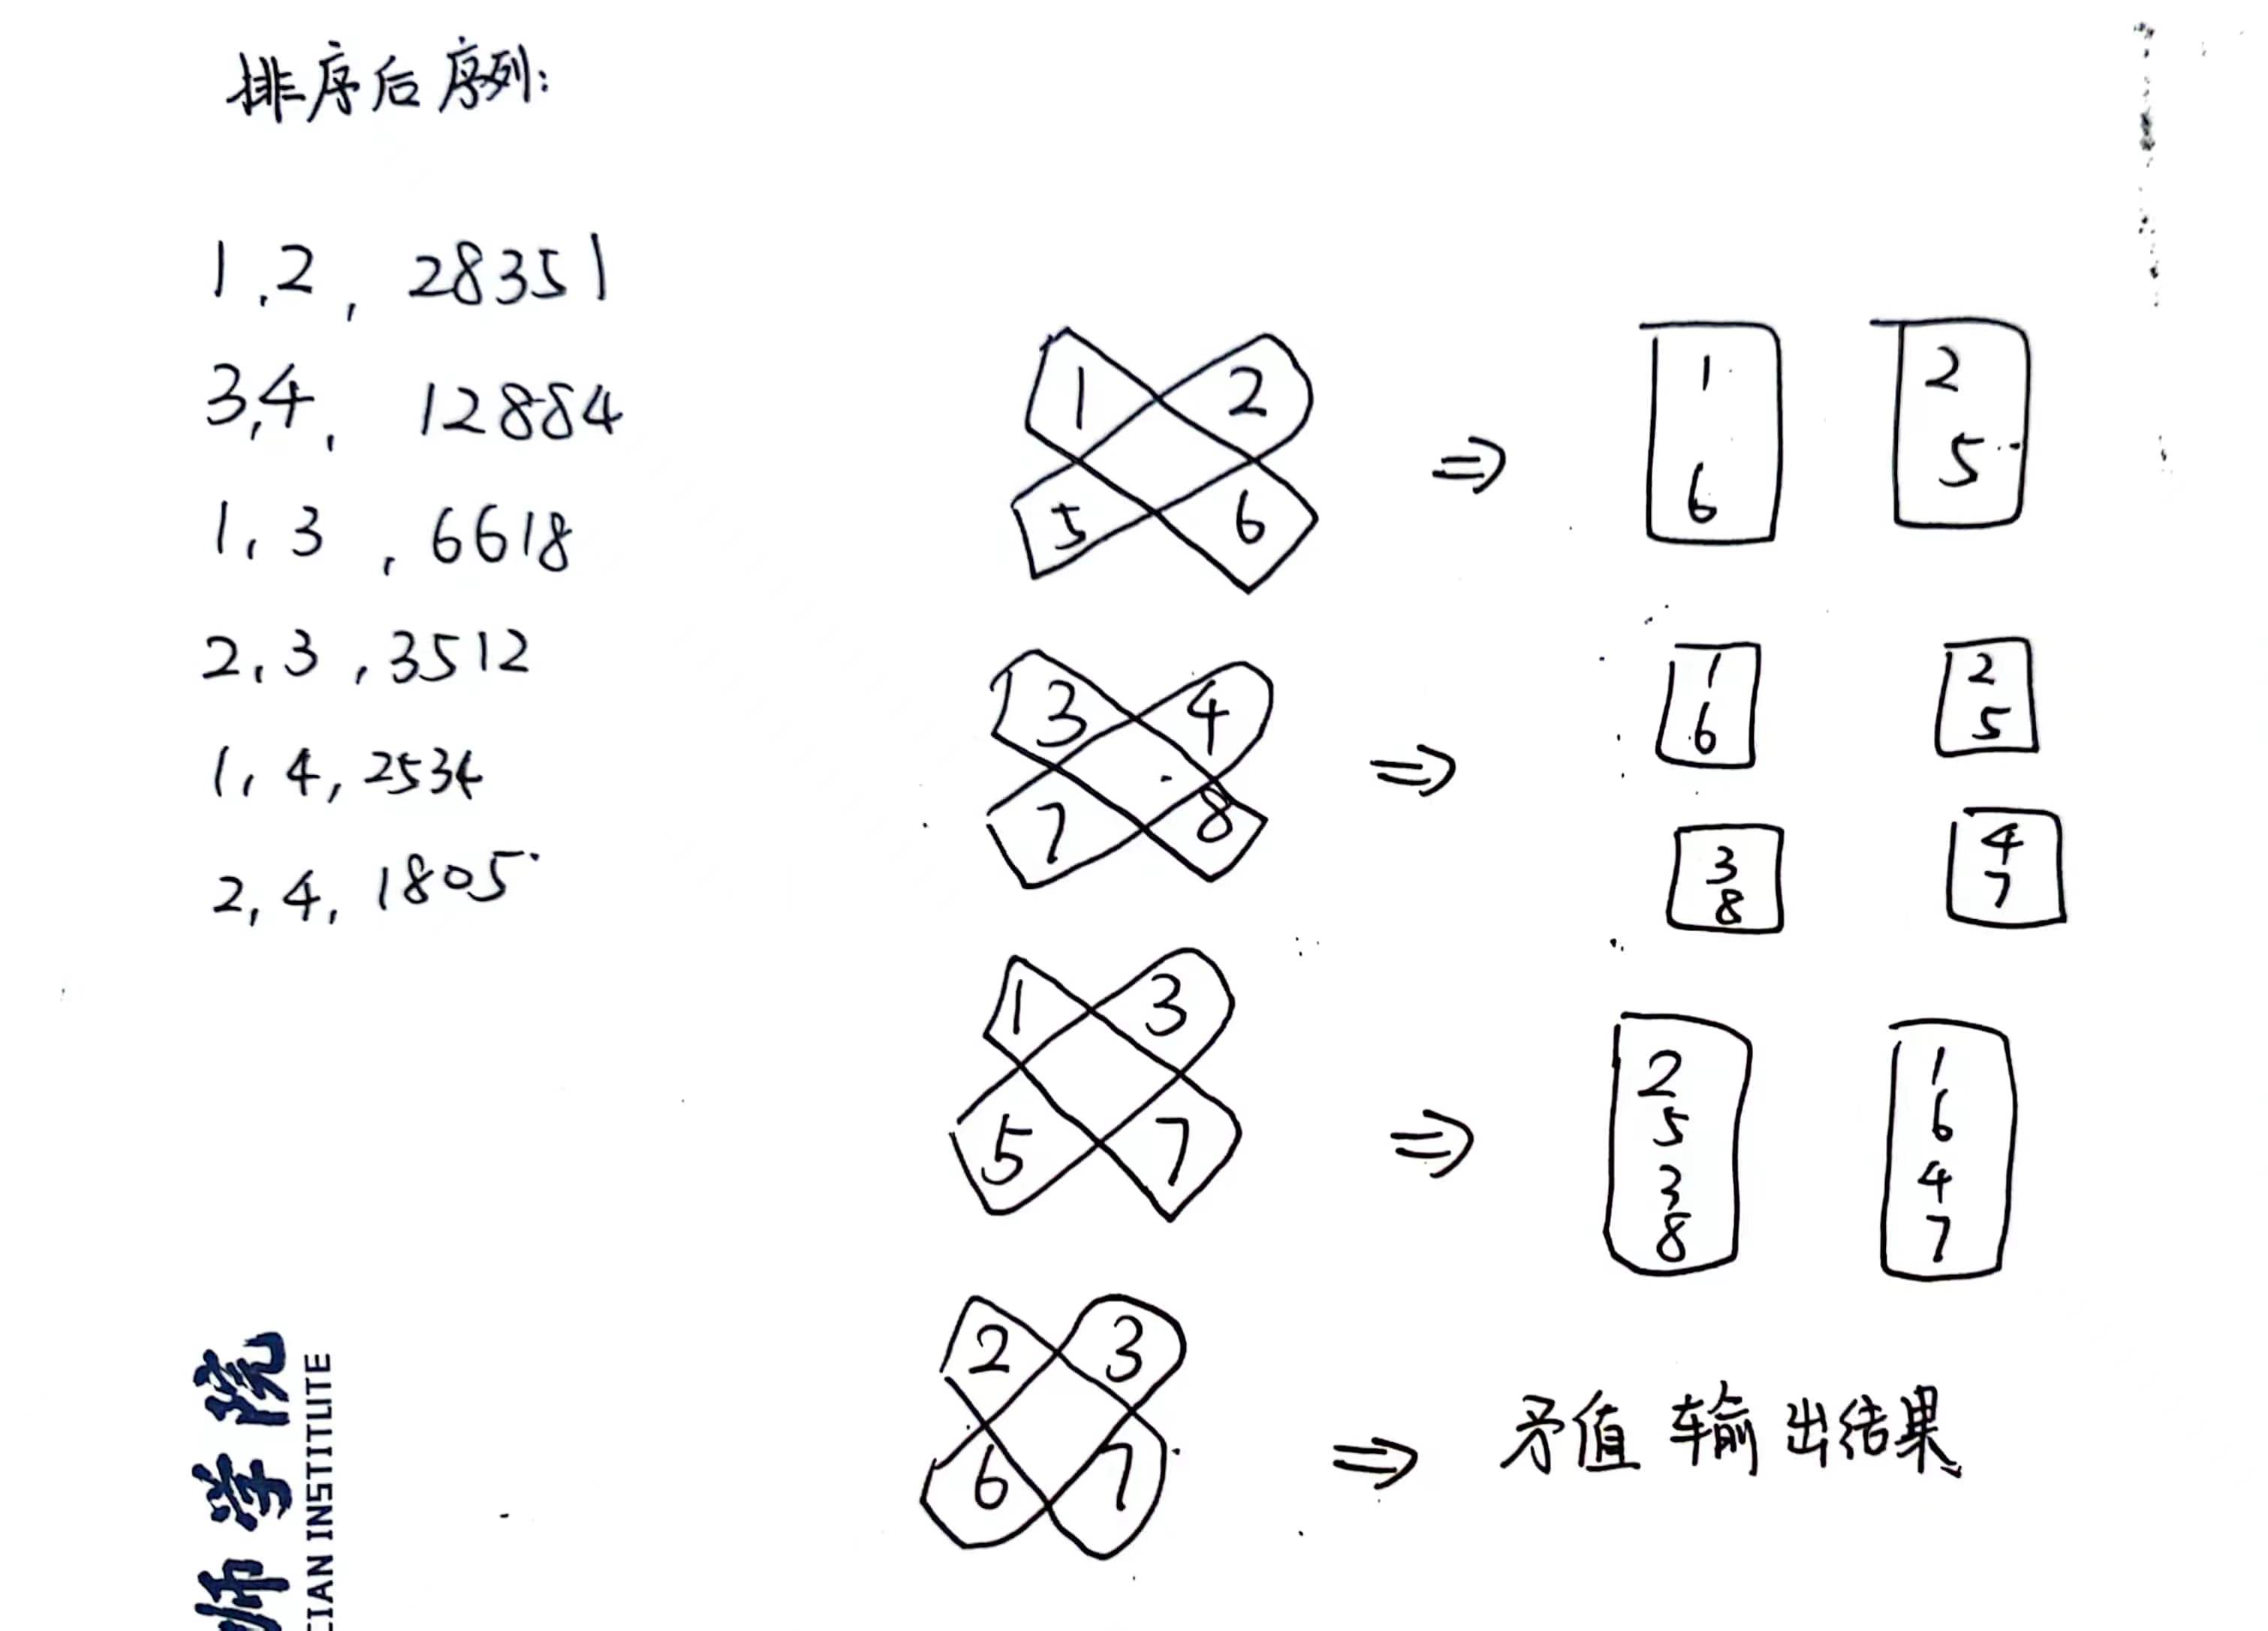 排序后序列:
1,2, 28351
3,4, 12884
1,3,6618
2,3,3512
1,4,2534
2,4,1805
1 2
5 6
⇒
1
6
2
5
3 4
7 8
⇒
1
6
2
5
3
8
4
7
1 3
5 7
⇒
2
5
3
8
1
6
4
7
2 3
6 7
⇒ 矛值 输出结果
师学院
CIAN INSTITLITE